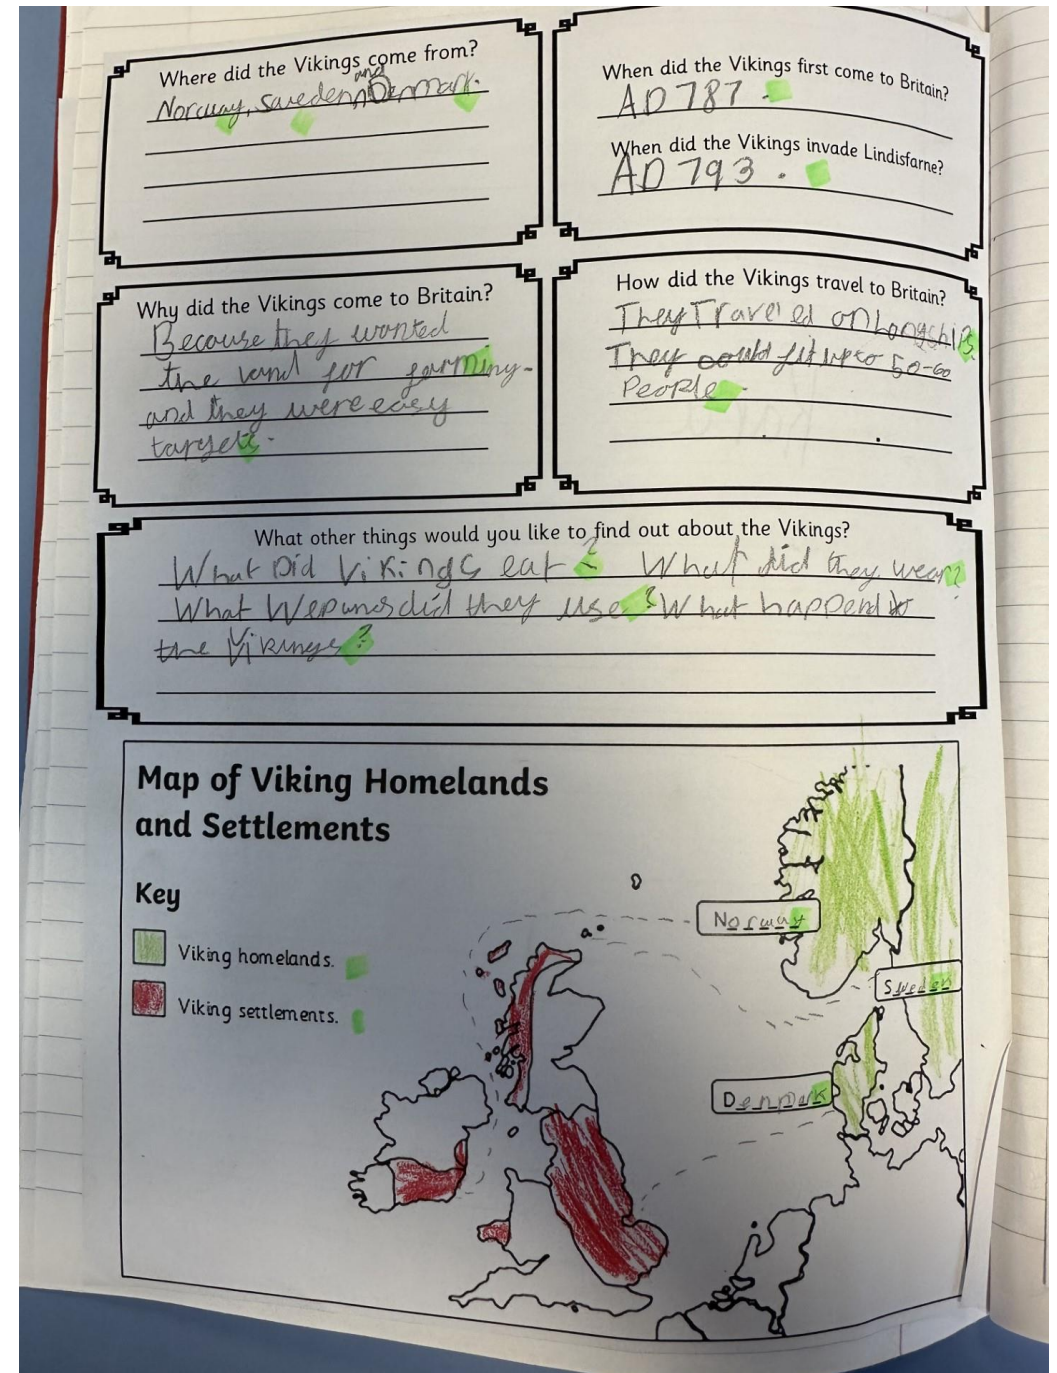 Where did the Vikings come from?
and
Norway, Sweden, Denmark.
When did the Vikings first come to Britain?
AD 787.
When did the Vikings invade Lindisfarne?
AD 793.
Why did the Vikings come to Britain?
Because they wanted
the land for farming.
and they were easy
targets.
How did the Vikings travel to Britain?
They Traveled on Longships.
They could fit up to 50-60
People.
What other things would you like to find out about the Vikings?
What Did Vikings eat? What did they wear?
What Wepunds did they use? What happend to
the Vikings?
Map of Viking Homelands
and Settlements
Key
Viking homelands.
Viking settlements.
Norway
Sweden
Denmark